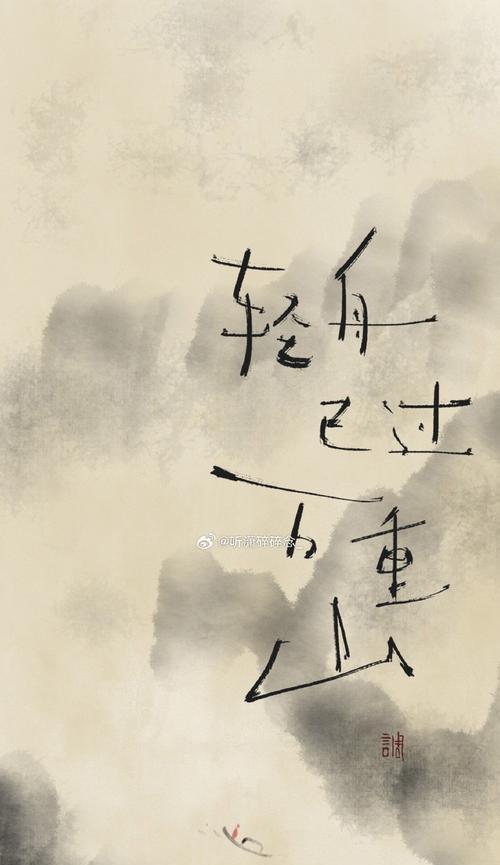 轻舟
已过
万重
山
@听潇碎碎念